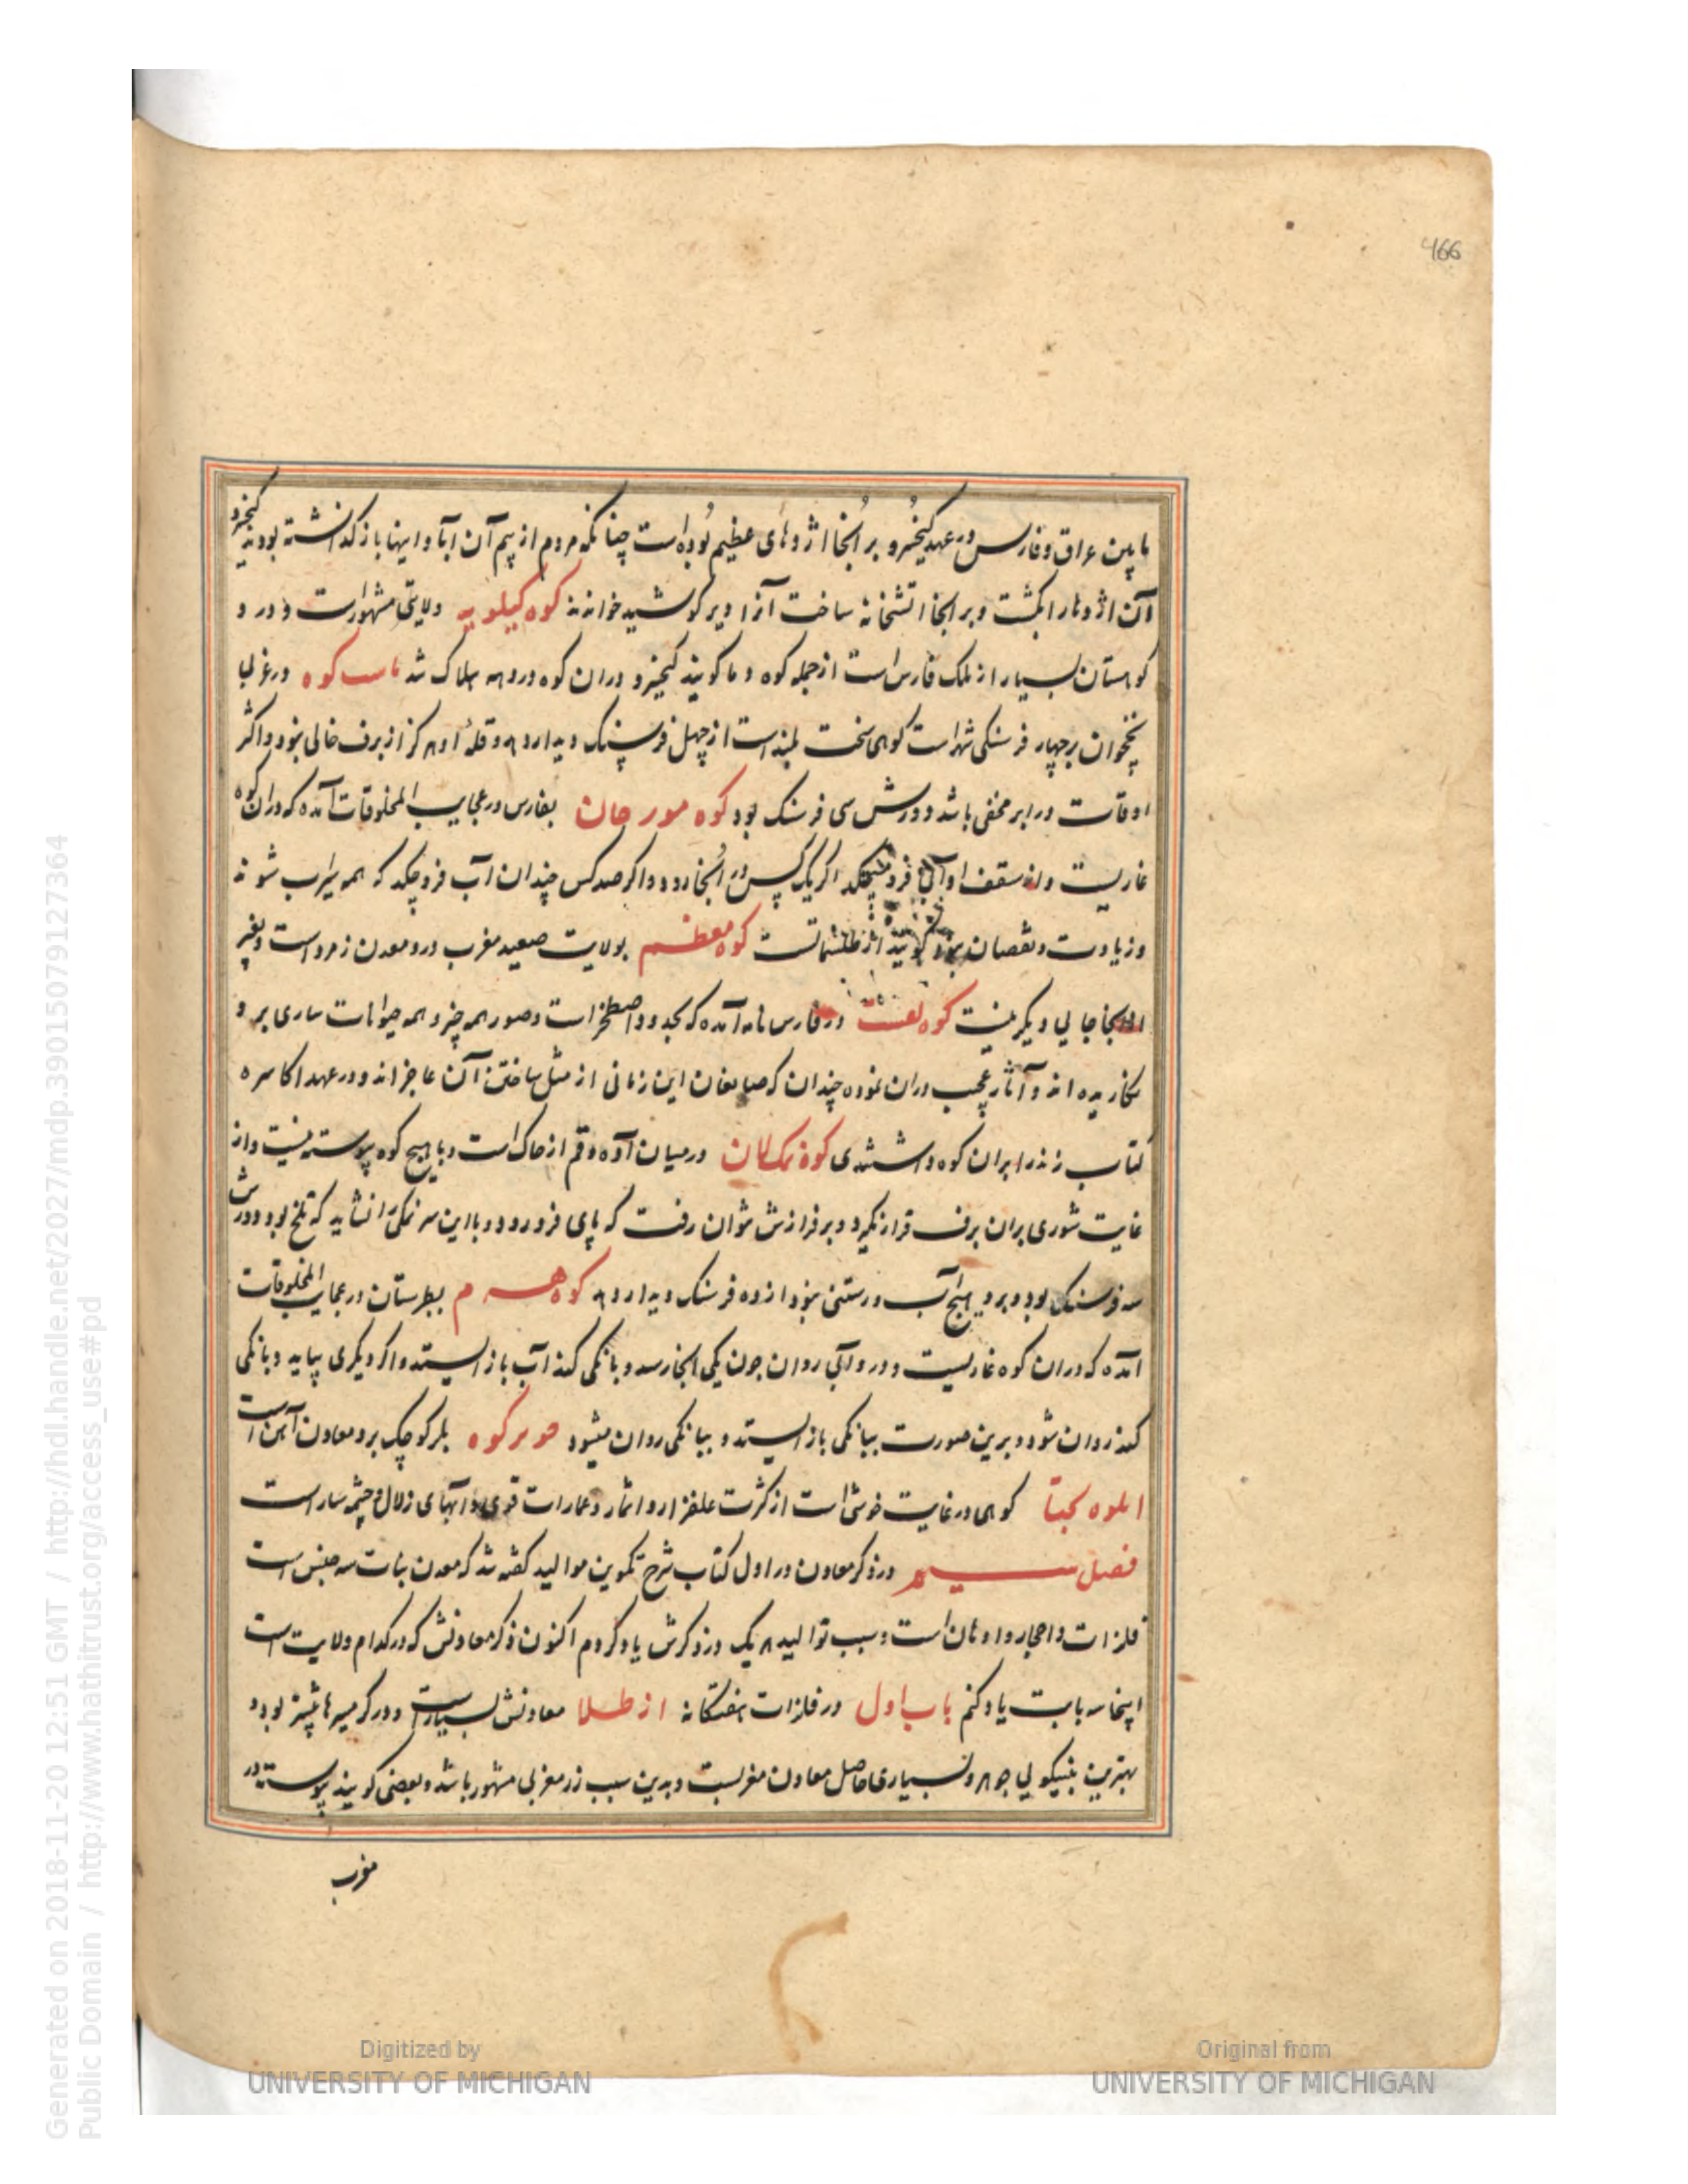 466
ما بین عراق و فارس در عهد کیخسرو بر آنجا اژدهای عظیم بوده است چنانکه مردم از بیم آن آبادانیها باز گذاشته بودند کیخسرو
آن اژدها را بکشت و بر آنجا آتشخانه ساخت آنرا دیر کوشید خوانند کوه کیلویه ولایتی مشهورست و در و
کوهستان بسیار از ملک فارس است از جمله کوه دما کویند کیخسرو دران کوه در دمه هلاک شد ماست کوه در غربی
نخجوان بر چهار فرسنگی شهر است کوهی سخت بلند است از چهل فرسنگ دیدار دهد و قله او هرگز از برف خالی نبود و اکثر
اوقات در ابر مخفی باشد دورش سی فرسنگ بود کوه مورجان بفارس در عجایب المخلوقات آمده که دران کوه
غاریست و از سقف او آبی فرو میچکد اگر یک کس در آنجا رود و اگر صد کس چندان آب فرو چکد که همه سیراب شوند
و زیادت و نقصان نبود کویند از طلسماتست کوه معظم بولایت صعید مغرب درو معدن زمرد است و بغیر
از آنجا جایی دیگر نیست کوه نفشت در فارس نامه آمده که بحدود اصطخر است و صور همه چیز و همه حیوانات ساری برو
نکاریده اند و آثار عجیب دران نموده چندان که صانعان این زمانی از مثل ساختن آن عاجزاند و در عهد اکاسره
کتاب زند را بران کوه داشتندی کوه نمک لان در میان آوه و قم از خاک است و با هیچ کوه پیوسته نیست و از
غایت شوری بران برف قرار نکیرد و بر فرازش نتوان رفت که پای فرو رود و با این سه نمکی را نشاید که تلخ بود دورش
سه فرسنک بود و برو هیچ آب و رستنی نبود از ده فرسنک دیدار دهد کوه هرم بطبرستان در عجایب المخلوقات
آمده که دران کوه غاریست و درو آبی روان چون یکی آنجا رسد و بانکی کند آب باز ایستد و اگر دیکری بیاید و بانکی
کند روان شود و برین صورت ببانکی باز ایستد و ببانکی روان میشود کوه بلر کوچک برو معادن آهن است
کوهی در غایت خوشی است از کثرت علفزار و اثمار و عمارات قوی و آبهای زلال و چشمه سار است
فصل سیم در ذکر معادن در اول کتاب شرح تکوین موالید گفته شد که معدن بنات سه جنس است
فلزات و احجار و ادهان است و سبب توالید هریک در ذکرش یاد کردم اکنون ذکر معادنش که در کدام ولایت است
اینجا سه بابت یاد کنم باب اول در فلزات هفتکانه از طلا معادنش بسیار است و در کرمسیرها بیشتر بود و
بهترین بنیکویی جوهر و بسیاری حاصل معادن مغربست و بدین سبب زر مغربی مشهور باشد و بعضی کویند پیوسته در
مغرب
Generated on 2018-11-20 12:51 GMT / http://hdl.handle.net/2027/mdp.39015079127364
Public Domain / http://www.hathitrust.org/access_use#pd
Digitized by
UNIVERSITY OF MICHIGAN
Original from
UNIVERSITY OF MICHIGAN